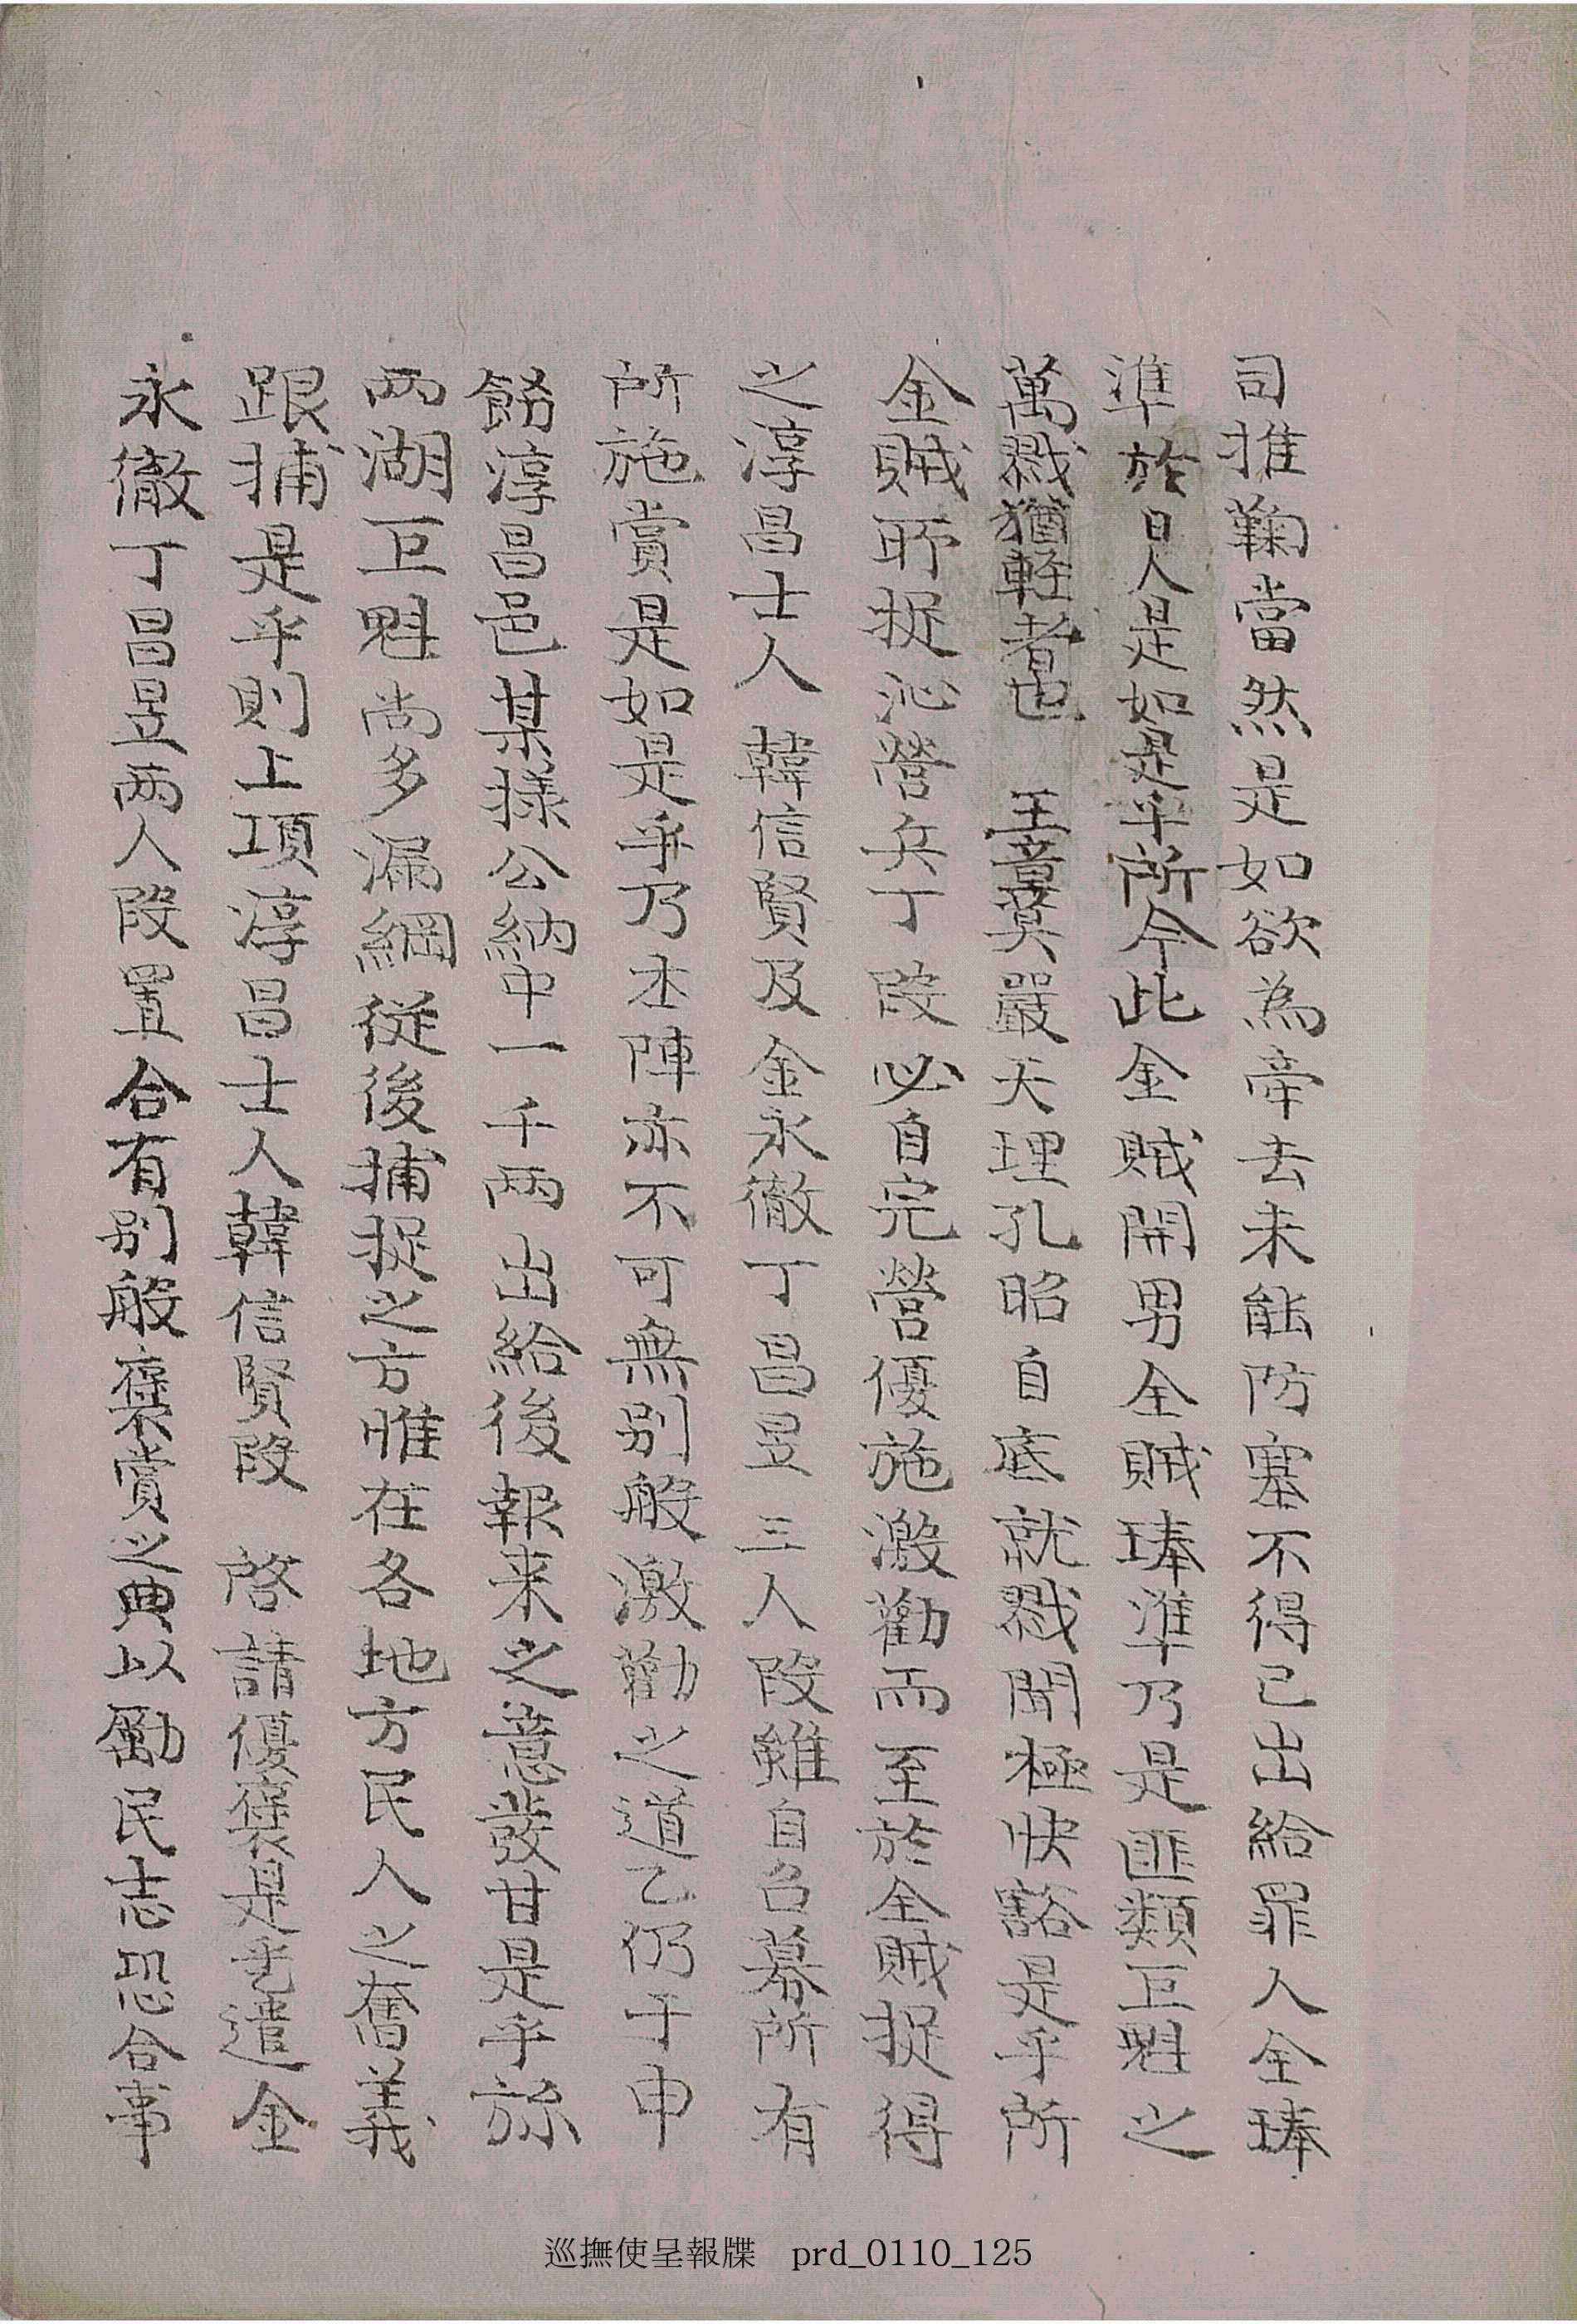 司推鞠當然是如欲為牽去未能防塞不得已出給罪人全琫
準於日人是如是乎所今此金賊開男全賊琫準乃是匪類巨魁之
萬戮猶輕者也 王章莫嚴天理孔昭自底就戮聞極快豁是乎所
金賊耶捉沁營兵丁段必自完營優施激勸而至於全賊捉得
之淳昌士人韓信賢及金永徹丁昌昱三人段雖自召募所有
所施賞是如是乎乃本陣亦不可無別般激勸之道乙仍于申
飭淳昌邑某樣公納中一千兩出給後報来之意發甘是乎旀
两湖巨魁尚多漏網從後捕捉之方惟在各地方民人之奮義
跟捕是乎則上項淳昌士人韓信賢段 啓請優褒是乎遣金
永徹丁昌昱两人段置合有別般褒賞之典以勵民志恐合事
巡撫使呈報牒 prd_0110_125